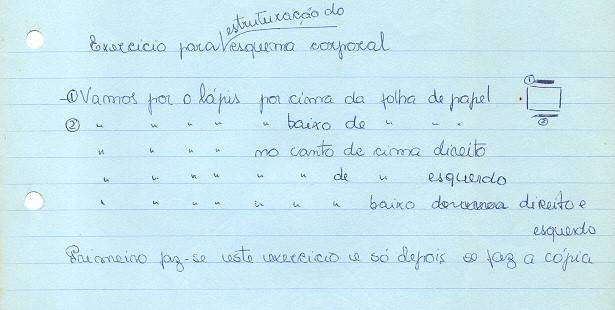 estruturação do
Exercicio para esquema corporal
① Vamos por o lápis por cima da folha de papel ①
② " " " " " baixo de " " . ②
" " " " no canto de cima direito
" " " " " " de " esquerdo
" " " " " " " baixo direito e
esquerdo
Primeiro faz-se este exercicio e só depois se faz a cópia